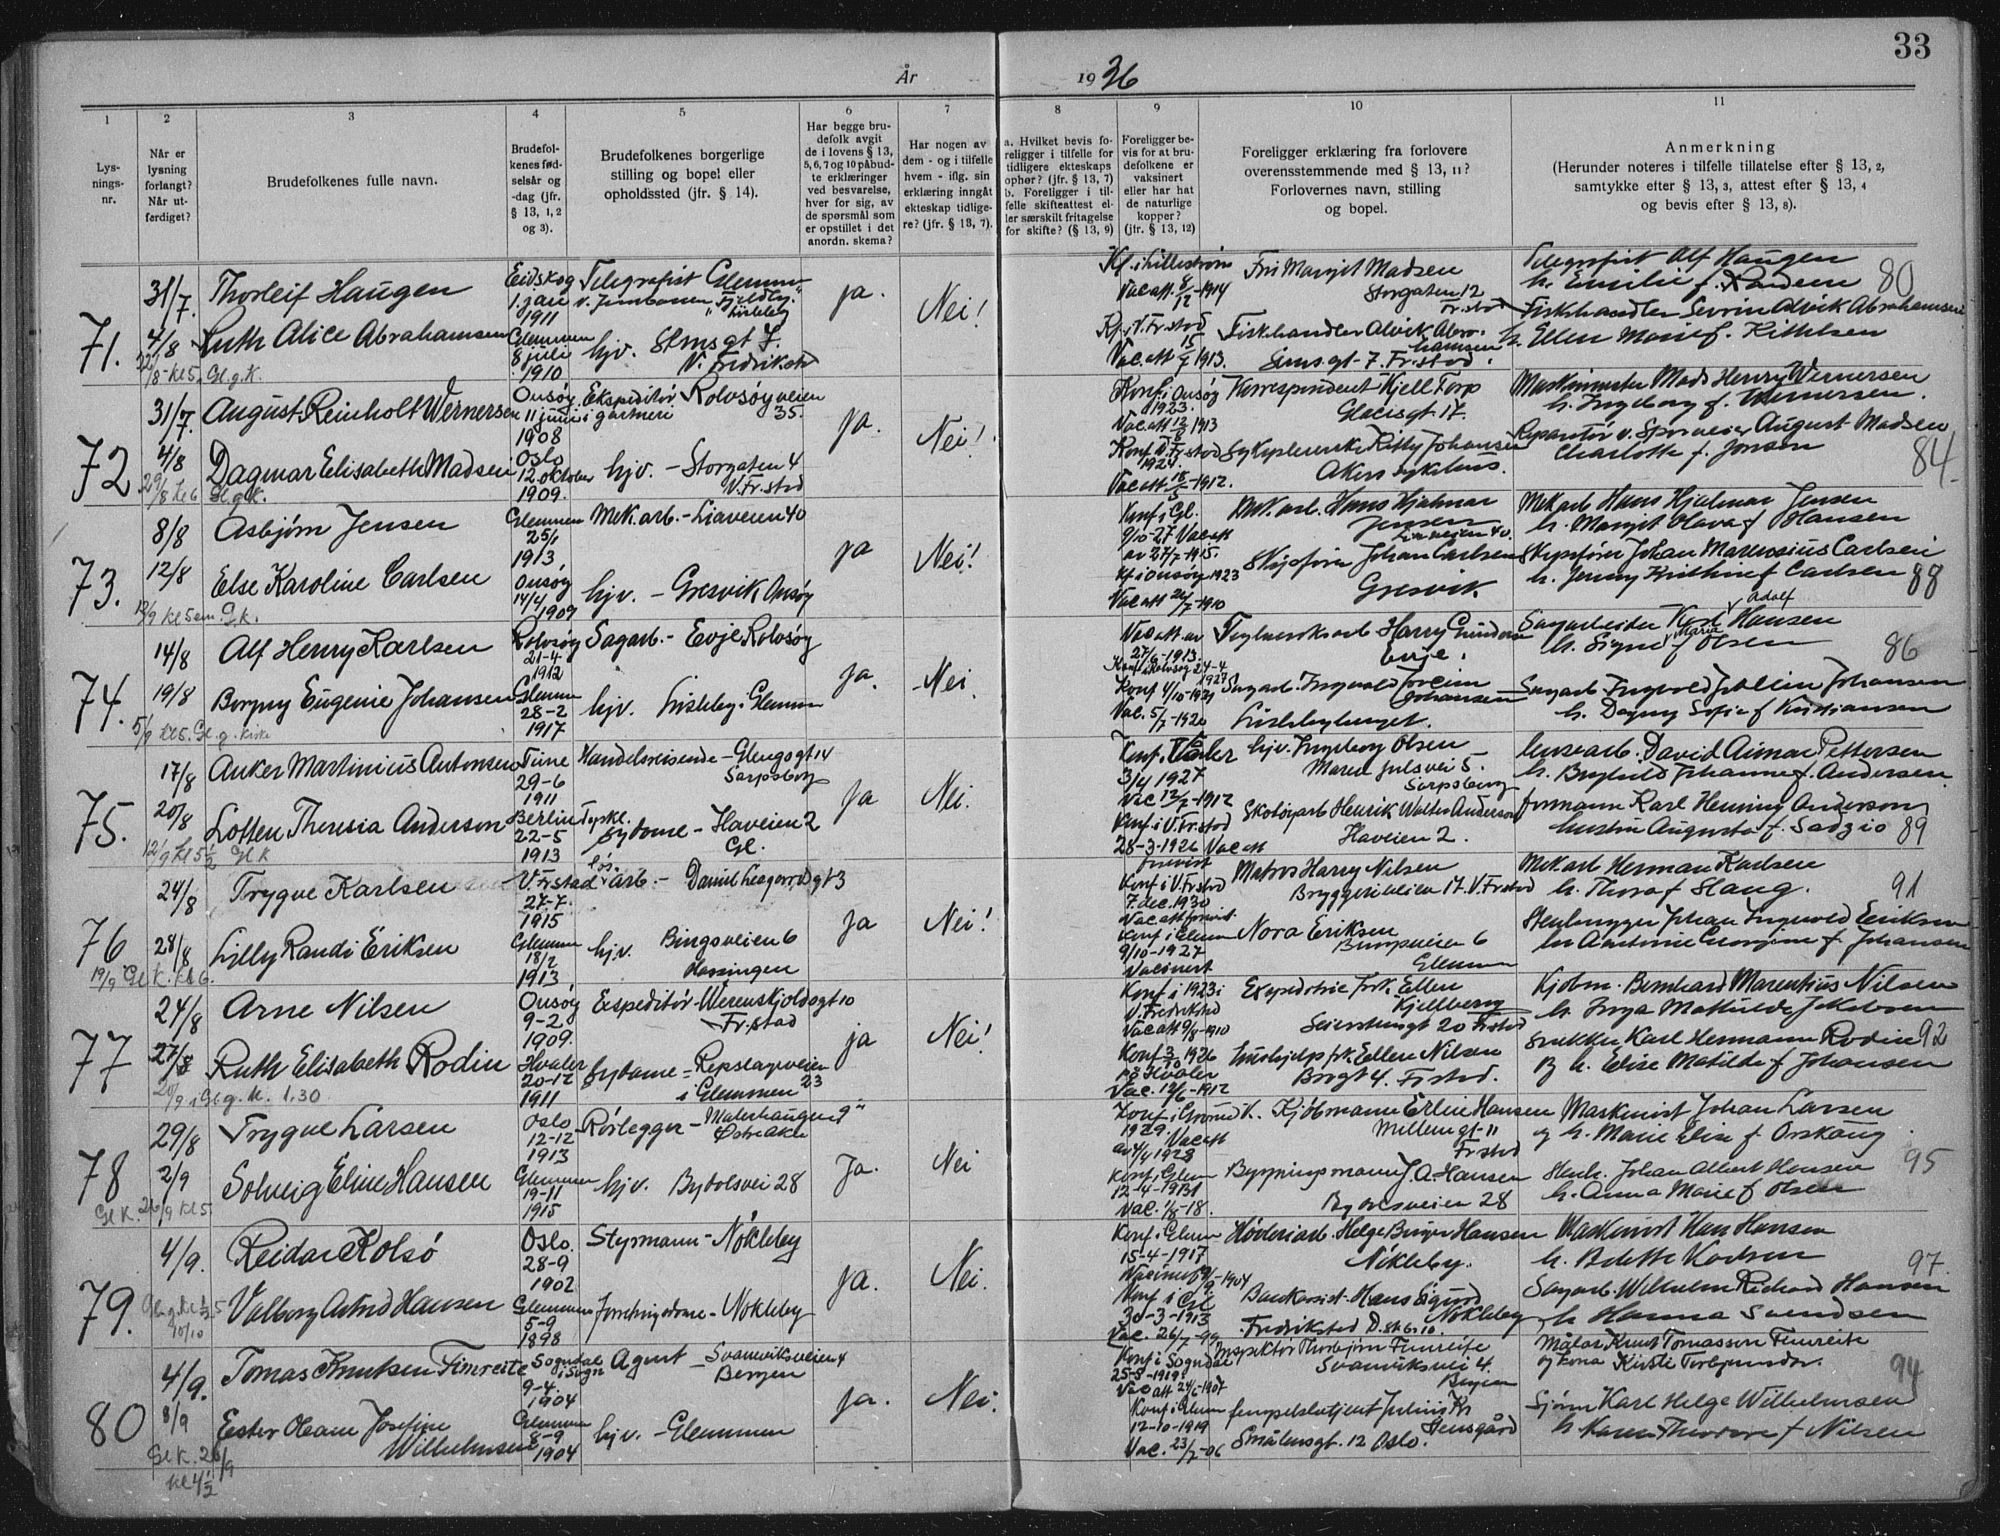 33
År 1936
1 2 3 4 5 6 7 8 9 10 11
Lys-
nings-
nr.
Når er
lysning
forlangt?
Når ut-
ferdiget?
Brudefolkenes fulle navn.
Brudefol-
kenes fød-
selsår og
-dag (jfr.
§ 13, 1, 2
og 3).
Brudefolkenes borgerlige
stilling og bopel eller
opholdssted (jfr. § 14).
Har begge bru-
defolk avgit
de i lovens § 13,
5, 6, 7 og 10 påbud-
te erklæringer
ved besvarelse,
hver for sig, av
de spørsmål som
er opstillet i det
anordn. skema?
Har nogen av
dem - og i tilfelle
hvem - iflg. sin
erklæring inngått
ekteskap tidlige-
re? (jfr. § 13, 7).
a. Hvilket bevis fo-
religger i tilfelle for
tidligere ekteskaps
ophør? (jfr. § 13, 7)
b. Foreligger i til-
felle skifteattest el-
ler særskilt fritagelse
for skifte? (§ 13, 9)
Foreligger be-
vis for at bru-
defolkene er
vaksinert
eller har hat
de naturlige
kopper?
(jfr. § 13, 12)
Foreligger erklæring fra forlovere
overensstemmende med § 13, 11?
Forlovernes navn, stilling
og bopel.
Anmerkning
(Herunder noteres i tilfelle tillatelse efter § 13, 2,
samtykke efter § 13, 3, attest efter § 13, 4
og bevis efter § 13, 8).
71.
31/7.
4/8
22/8 - kl 5. Gl. g. K.
Thorleif Haugen
Ruth Alice Abrahamsen
Eidskog
1. jan
1911
Glemmen
8 juli
1910
Telegrafist Glemmen
v. Jernbanen "Fjeldby"
Lisleby
hjv. Stensgt 7.
V. Fredrikstad
ja.
Nei!
Kf. i Lillestrøm
Vac att. 8/12 - 1914
Kf. i V. Fr.stad
Vac. att 1913.
Frk Margit Madsen
Storgaten 12
Fr.stad
Fiskhandler Alvik Abra-
hamsen
gt. 7. Fr.stad.
Telegrafist Alf Haugen
h. Emilie f. Randem 80
Fiskhandler Sevrin Alvik Abrahamsen
h. Ellen Marie f. Kittelsen
72
31/7.
4/8
29/8 kl 6 Gl. g. K.
August Reinholt Wernersen
Dagmar Elisabeth Madsen
Onsøy
11 juni
1908
Oslo
12. oktober
1909.
Ekspeditør Rolvsøyveien
i gartneri 35.
hjv. - Storgaten 4
V. Fr.stad
ja.
Nei!
Konf. i Onsøy
1923.
Vac att 1913
Konf. V. Fr.stad
1924.
Vac att. 18/5 - 1912.
Korrespondent Kjell Torp
Glacisgt. 17.
Sykepleierske Kitty Johansen
Akers sykehus.
Maskinmester Mads Henry Wernersen
h. Ingeborg f. Wernersen.
Reparatør v. Sporveien August Madsen
Charlotte f. Jonson 84.
73.
8/8
12/8
12/9 kl 5 em. G. k.
Asbjørn Jensen
Else Karoline Carlsen
Glemmen
25/1
1913
Onsøy
14/4
1909
Mek. arb. - Liaveien 40
hjv. - Gresvik, Onsøy
ja
Nei!
Konf i Gl.
9/10 - 27 Vac att
av 27/7 - 1915.
Kf i Onsøy 1923
Vac att 26/7 - 1910
Mek. arb. Hans Hjalmar
Jensen
Liaveien 40.
Skipsfører Johan Carlsen
Gresvik
Mek arb Hans Hjalmar Jensen
h. Margit Olava f Hansen
Skipsfører Johan Marensius Carlsen
h. Jenny Kristine f Carlsen 88
74.
14/8
19/8
5/9 kl 5. Gl. g. kirke
Alf Henry Karlsen
Borgny Eugenie Johansen
Rolvsøy
21-4
1912
Glemmen
28-2
1917
Sagarb. - Evje, Rolvsøy
hjv. Lisleby i Glemmen
Ja.
Nei
Vac att. av
27/6 - 1913.
Konf. i Rolvsøy 24-4
1927
Konf 4/10 - 1931
Vac. 5/7 - 1920
Teglverksarb Harry Gundersen
Evje.
Sagarb. Ingvald Joreim
Johansen
Lislebyberget.
Sagarbeider Karl Adolf Hansen
h. Signe Marie f Olsen 86
Sagarb. Ingvald Johansen
h. Dagny Sofie f Kristiansen
75.
17/8
20/8
12/9 kl 5 1/2 Gl K
Anker Martinius Antonsen
Lotten Theresia Anderson
Tune
29-6
1911
Berlin Tyskl.
22-5
1913
Handelsreisende - Glengsgt 14
Sarpsborg
sydame - Haveien 2
Gl.
Ja
Nei.
Konf. i Våler
3/4 1927
Vac 12/7 - 1912
Konf. i V. Fr.stad
28-3-1926 Vac att
forevist
hjv. Ingeborg Olsen
Maren Julsvei 5.
Sarpsborg
Skotøyarb Henrik Walter Anderson
Haveien 2.
arb. David Aimar Pettersen
h. Brynhild Johanne f. Andersen
formann Karl Henning Anderson
hustru Augusta f. Sadzio 89
76
24/8
28/8
19/9 Gl. K. kl 6.
Trygve Karlsen
Lilly Randi Eriksen
V. Fr.stad
27-7.
1915
Glemmen
18/2
1913
løs arb. - Daniel Leegaardsgt 3
hjv. Bingsveien 6
Hassingen
ja
Nei!
Konf i V. Fr.stad
7. dec. 1930
Vac att forevist.
Konf i Glem
9/10 - 1927
Vacinert
Matros Harry Nilsen
Bryggeriveien 17. V. Fr.stad
Nora Eriksen
Bingsveien 6
Glemmen
Mek arb Herman Karlsen
h. Thora f Haug. 91
Stenhugger Johan Ingvald Eriksen
h. Antonie Georgine f. Johansen
77
24/8
27/8
20/9 i Gl g. k. 1.30
Arne Nilsen
Ruth Elisabeth Rodin
Onsøy
9-2
1909.
Hvaler
20-12
1911
Ekspeditør - Werenskjoldsgt 10
Fr.stad
sydame = Repslagerveien
i Glemmen 23
ja
Nei!
Konf i 1923 i
V. Fredrikstad
Vac att 9/8 - 1910
Konf 3/10 1926
på Hvaler
Vac. 12/6 - 1912
Ekspeditrise frk. Ellen
Kjellberg
Seierstengt 20 Fr.stad
Hushjelp frk. Ellen Nilsen
Borgt 4. Fr.stad.
Kjøbm. Bernhard Marentius Nilsen
h. Inga Mathilde Jakobsen
snekker Karl Hermann Rodin 92
og h. Elise Matilde f Johansen
78
29/8
2/9
Gl K. 26/9 kl 5
Trygve Larsen
Solveig Eline Hansen
Oslo
12-12
1913
Glemmen
19-11
1915
Rørlegger - Malerhaugen 9"
Østre Aker
hjv. Bydalsvei 28
Ja.
Nei
Konf. i Grønnl. K.
1929.
Vac att
av 4/4 1928
Konf. i Glem
12-4-1931
Vac. 1/8 - 18.
Kjøbmann Erling Hansen
Mellemgt. 11
Fr.stad
Bygningsmann J. A. Hansen
Bydalsveien 28
Maskinist Johan Larsen
og h. Marie Elise f. Orskaug.
Stenh. Johan Albert Hansen 95
h. Anna Marie f Olsen
79.
4/9.
Gl. g. kl 1/2 5
10/10
Reidar Kolsø
Valborg Astrid Hansen
Oslo.
28-9
1902
Glemmen
5-9
1898
Styrmann - Nøkleby
forretningsdame - Nøkleby
Ja.
Nei.
Konf i Glem
15-4-1917
1904
Konf i Gl
30-3-1913
Vac. 26/7 - 99
Helge Birger Hansen
Nøkleby.
Bankassist. Hans Sigurd
Nøkleby
Fredrikstad D.sk.bs 10.
Maskinist Hans Hansen
h. Bolette Karlsen 97.
Sagarb. Wilhelm Richard Hansen
h Hanna Svendsen
80
4/9.
8/9
Gl K. 26/9
kl 4 1/2
Tomas Knutsen Fimreite
Ester Oleane Josefine
Wilhelmsen
Sogndal
i Sogn
9-4.
1904
Glemmen
8-9
1904
Agent - Svaneviksveien 4
Bergen
hjv. - Glemmen
ja.
Nei.
Konf i Sogndal
25-5-1919
Vac att 24/6 - 1907
Konf i Glem
12-10-1919
Vac. 23/7 - 06
Inspektør Thorbjørn Fimreite
Svaneviksvei 4.
Bergen
fengselsbetjent Julius Kr
Stensgård
Smålensgt. 12 Oslo.
Målar Knut Tomasson Fimreite
og kona Kirsti Torbjørnsdor. 94
Sjøm Karl Helge Wilhelmsen
h. Karen Theodora f Nilsen